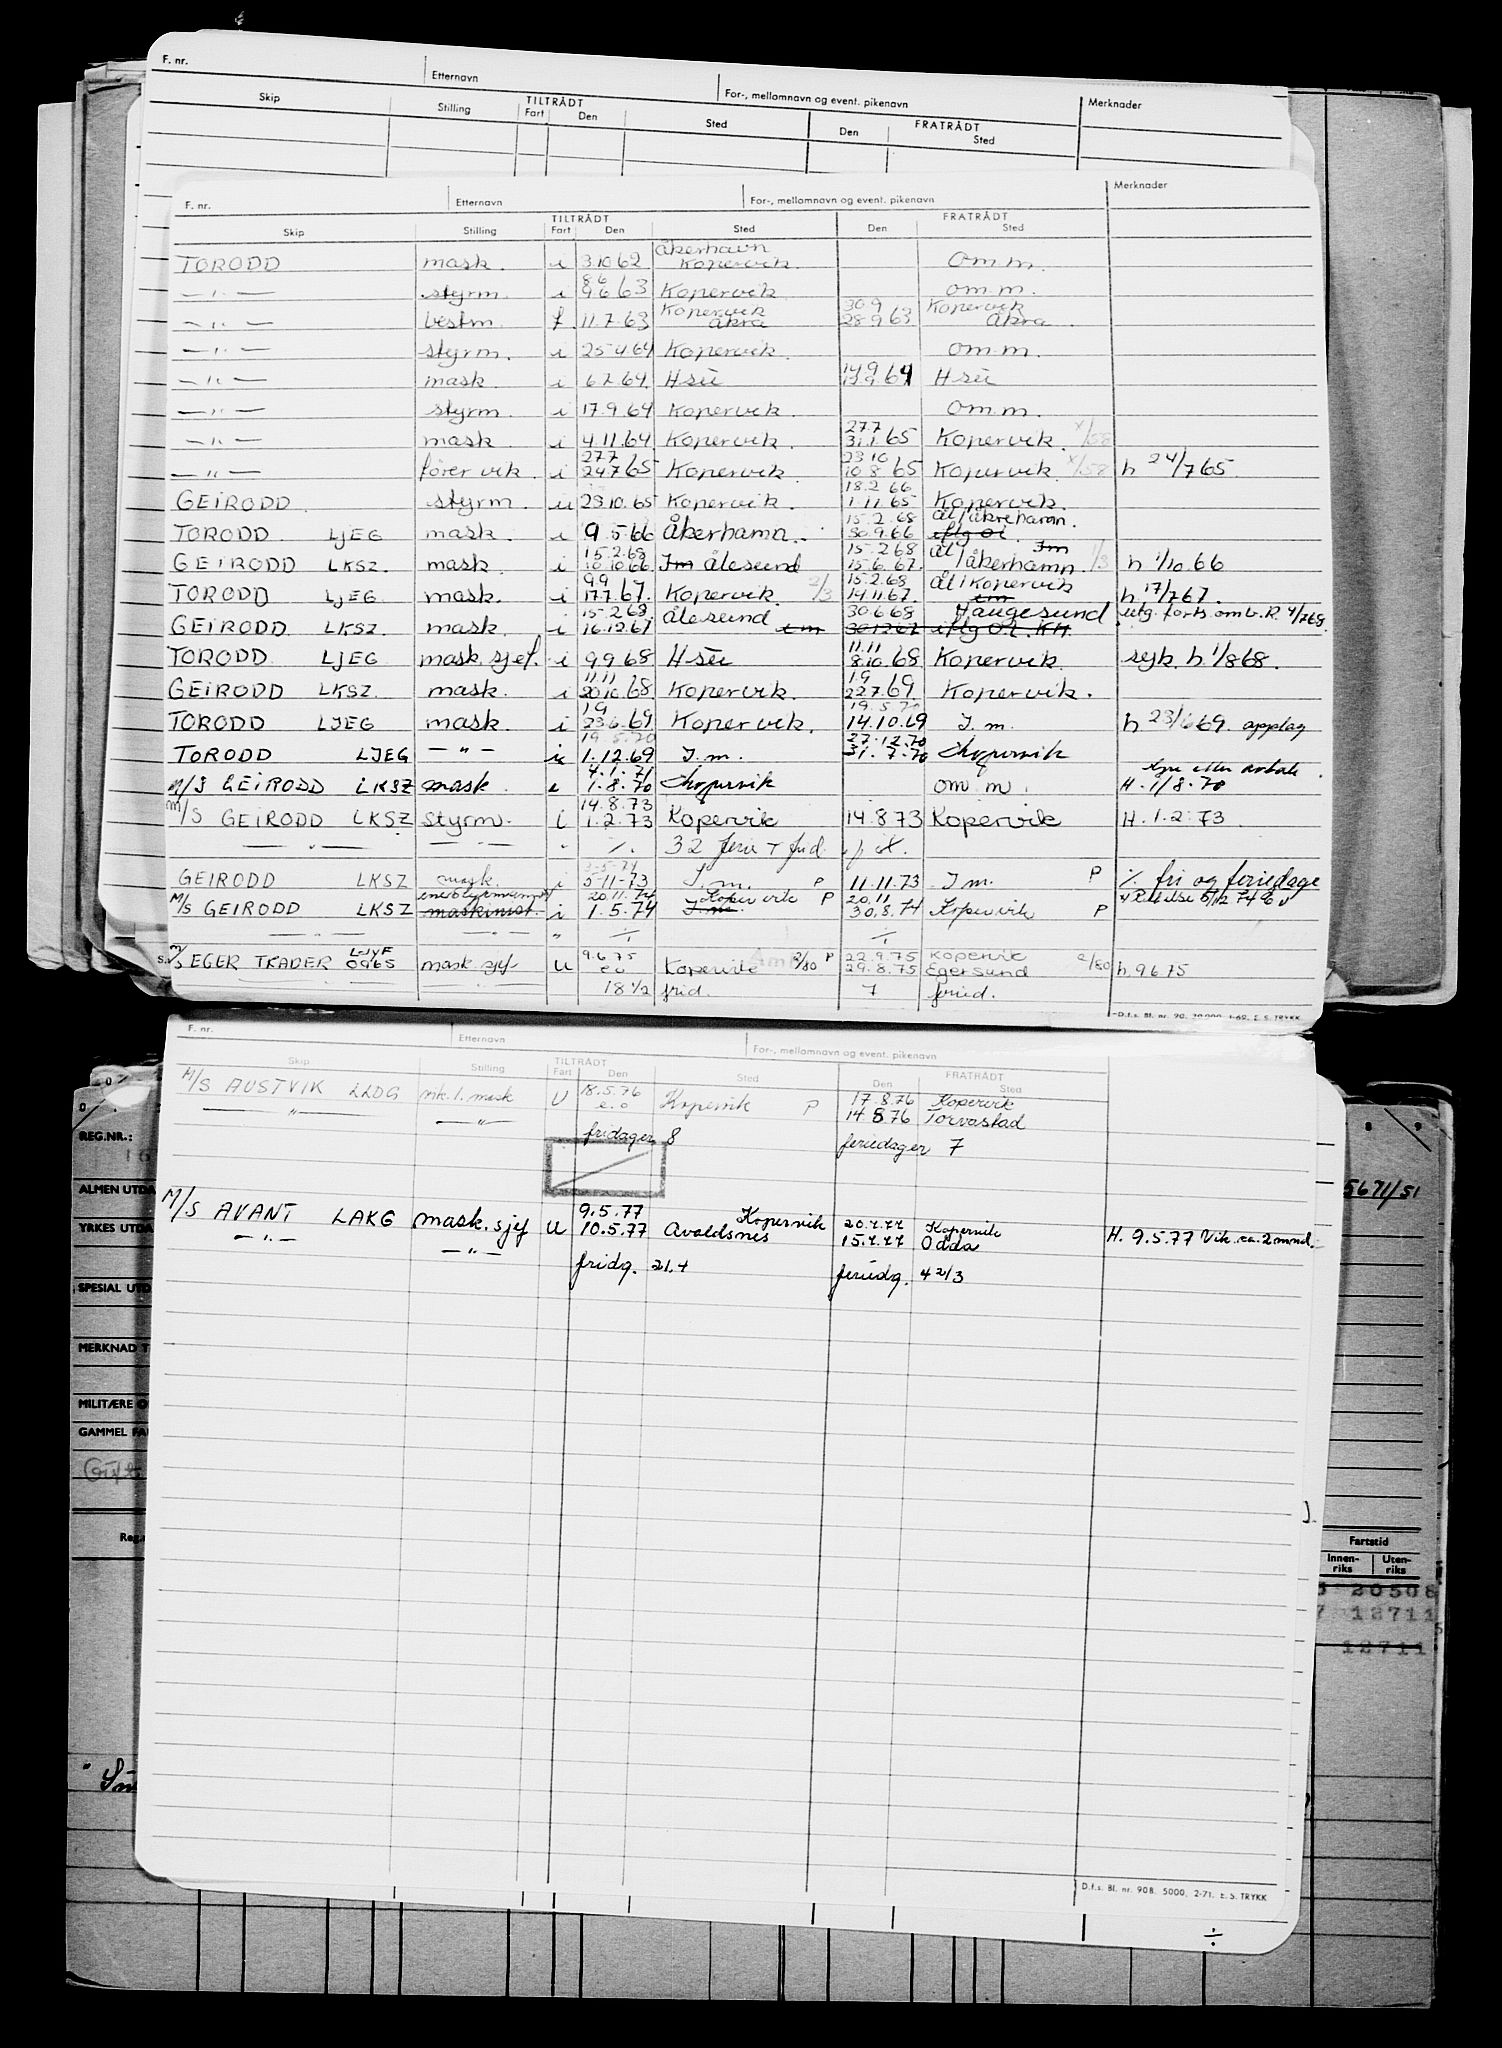 F. nr. Etternavn For-, mellomnavn og event. pikenavn Merknader
Skip Stilling TILTRÅDT Fart Den Sted FRATRÅDT Den Sted
F. nr. Etternavn For-, mellomnavn og event. pikenavn Merknader
TILTRÅDT FRATRÅDT
Skip Stilling Fart Den Sted Den Sted
Åkerhavn
TORODD mask. i 3.10.62 Kopervik. om.m.
8.6
— " — styrm. i 9.6.63 Kopervik om.m.
Kopervik 30.9 Kopervik
— " — bestm. f. 11.7.63 Åkra 28.9.63 Åkra.
— " — styrm. i 25.4.64 Kopervik. om.m.
14.9
— " — mask. i 6.7.64. H.su 64 H.su
— " — styrm. i 17.9.64 Kopervik. om.m.
27.7
— " — mask. i 4.11.64. Kopervik. 31.1.65 Kopervik. x/58
27.7 23.10
— " — fører vik. i 24.7.65 Kopervik. 10.8.65 Kopervik. x/58 h 24/7.65.
18.2.66
GEIRODD. styrm. u 23.10.65 Kopervik. 1.11.65 Kopervik.
15.2.68 Ål/åkrehamn.
TORODD LJEG mask. i 9.5.66 Åkerhamn. 30.9.66 iflg OL
15.2.68 15.2.68 Ål Im
GEIRODD LKSZ. mask. i 10.10.66 Im Ålesund 15.6.67. åkerhamn. 1/3 h 1/10.66
9.9 15.2.68 Ål/Kopervik
TORODD LJEG mask. i 17.7.67. Kopervik. 2/3 14.11.67. h. 17/7.67.
15.2.68 Ålesund 30.6.68 Haugesund utg. forts. omb. R. 4/7.68.
GEIRODD LKSZ. mask. i 16.12.67 30.12.67 iflg OL. KH.
11.11
TORODD LJEG mask.sjef. i 9.9.68 H.su 8.10.68 Kopervik. sejk. h. 1/8.68.
11.11 1.9
GEIRODD LKSZ. mask. i 20.10.68. Kopervik. 22.7.69. Kopervik.
1.9 19.5.70
TORODD LJEG mask i 23.6.69 Kopervik. 14.10.69 I.m. h 23/6.69. opplag
19.5.70 27.12.70
TORODD LJEG — " — i 1.12.69 I.m. 31.7.70 Kopervik
4.1.71
M/S GEIRODD LKSZ mask. i 1.8.70 Kopervik om m. H. 1/8.70
14.8.73
M/S GEIRODD LKSZ styrm. i 1.2.73 Kopervik 14.8.73 Kopervik H. 1.2.73.
— " — — " — " ./. 32 ferie + frid.
3-5-74
GEIRODD LKSZ mask. i 5-11-73 I.m. P 11.11.73 I.m. P ./. fri og feriedage
20.11.74 Kopervik P 20.11
M/S GEIRODD LKSZ maskinist. i 1.5.74 I.m. 30.8.74 Kopervik P
— " — — " — " ./. ./.
LJYF 9.6.75 22.9.75 Kopervik
M/S EGER TRADER 0965 mask.sjef U e.o Kopervik 2/80 P 29.8.75 Egersund 2/80 h. 9.6.75
18 1/2 frid. 7 feried.
D.f.s. Bl. nr. 90. 20.000. 1-69. E. S. TRYKK
F. nr. Etternavn For-, mellomnavn og event. pikenavn
TILTRÅDT FRATRÅDT
Skip Stilling Fart Den Sted Den Sted
M/S AUSTVIK LLDG vik. 1. mask U 18.5.76 Kopervik P 17.8.76 Kopervik
— " — — " — e.o 14.8.76 Torvastad
fridager 8 feriedager 7
M/S AVANT LAKG mask.sjef U 9.5.77 Kopervik 20.7.77 Kopervik
— " — — " — 10.5.77 Avaldsnes 15.7.77 Odda H. 9.5.77 Vik. ca. 2 mnd.
fridg. 21.4 feriedg. 4 2/3
D.f.s. Bl. nr. 90B. 5000. 2-71. E. S. TRYKK
REG.NR.:
ALMEN UTDA
YRKES UTDA
SPESIAL UTD
MERKNAD T
MILITÆRE O
GAMMEL FA
Gift
Reg.
8 9
5671/51
Fartstid
Innen- riks Uten- riks
20508
7 12711
12711
÷